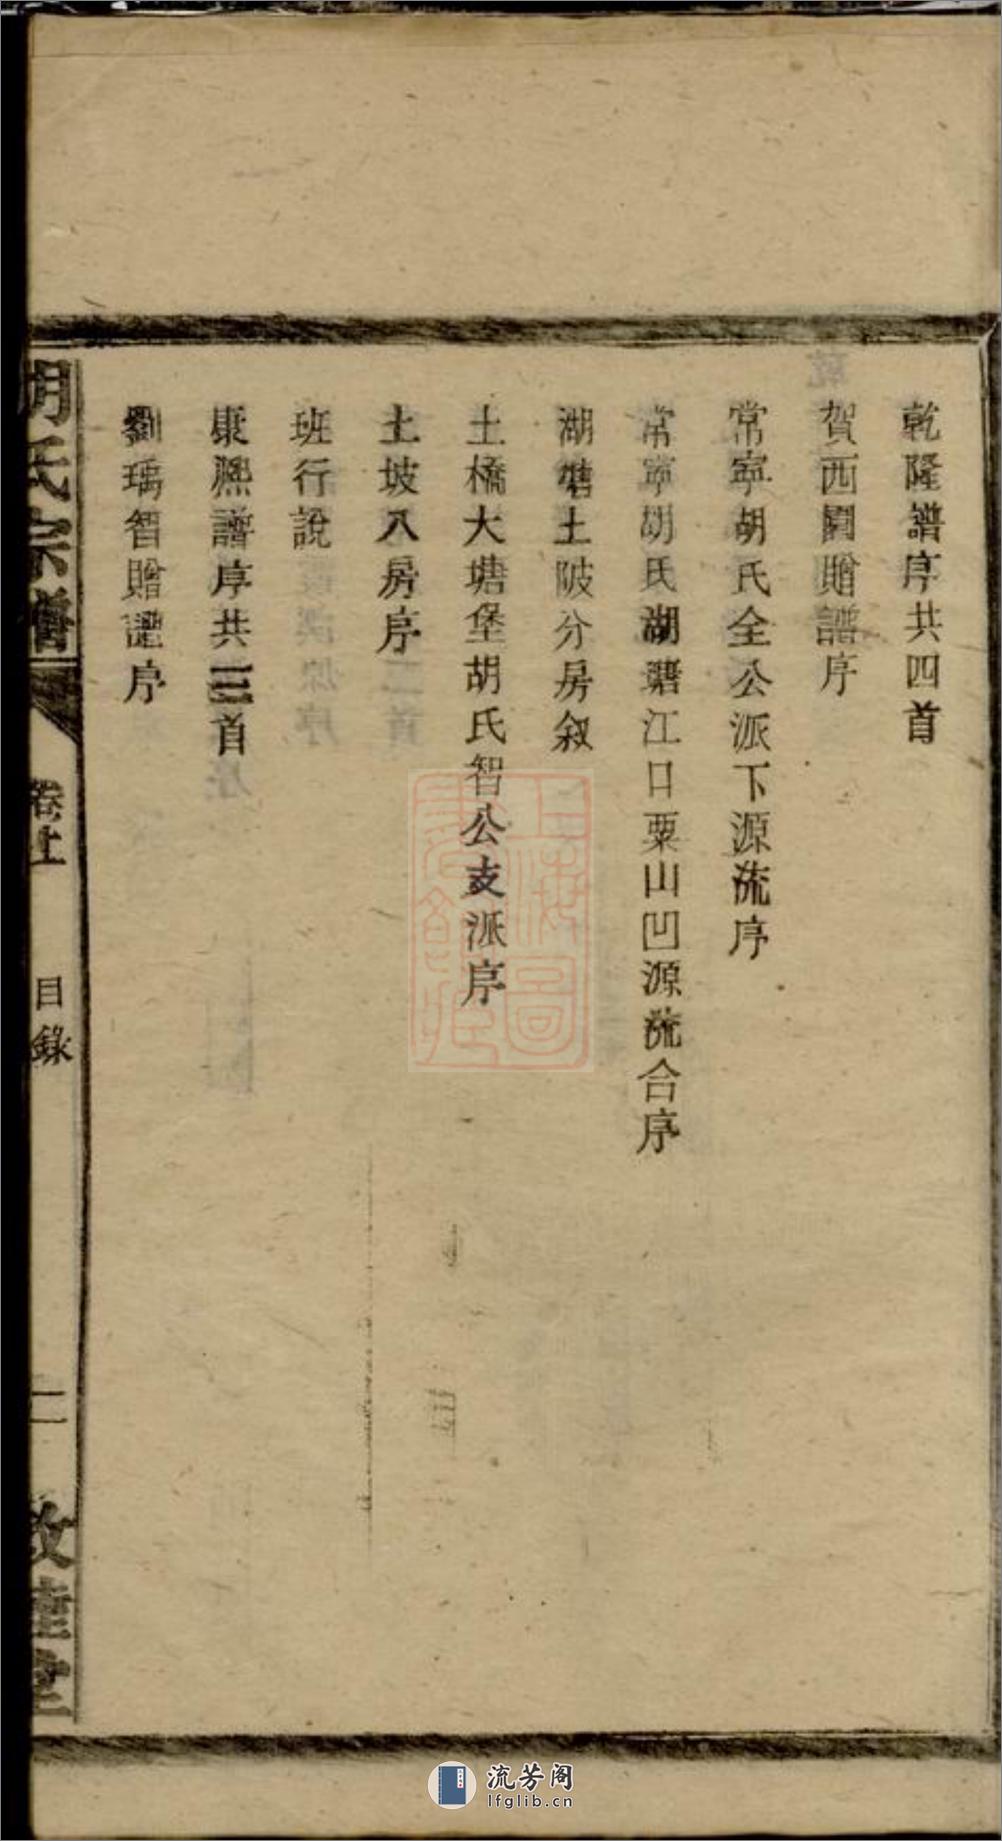 乾隆譜序共四首
賀西園贈譜序
常寧胡氏全公派下源流序
常寧胡氏湖塘江口粟山凹源流合序
湖塘土陂分房叙
土橋大塘堡胡氏智公支派序
土坡八房序
班行說
康熙譜序共三首
劉瑀智贈譜序
胡氏宗譜
卷上
目錄
二
敦達堂
流芳阁
lfglib.cn